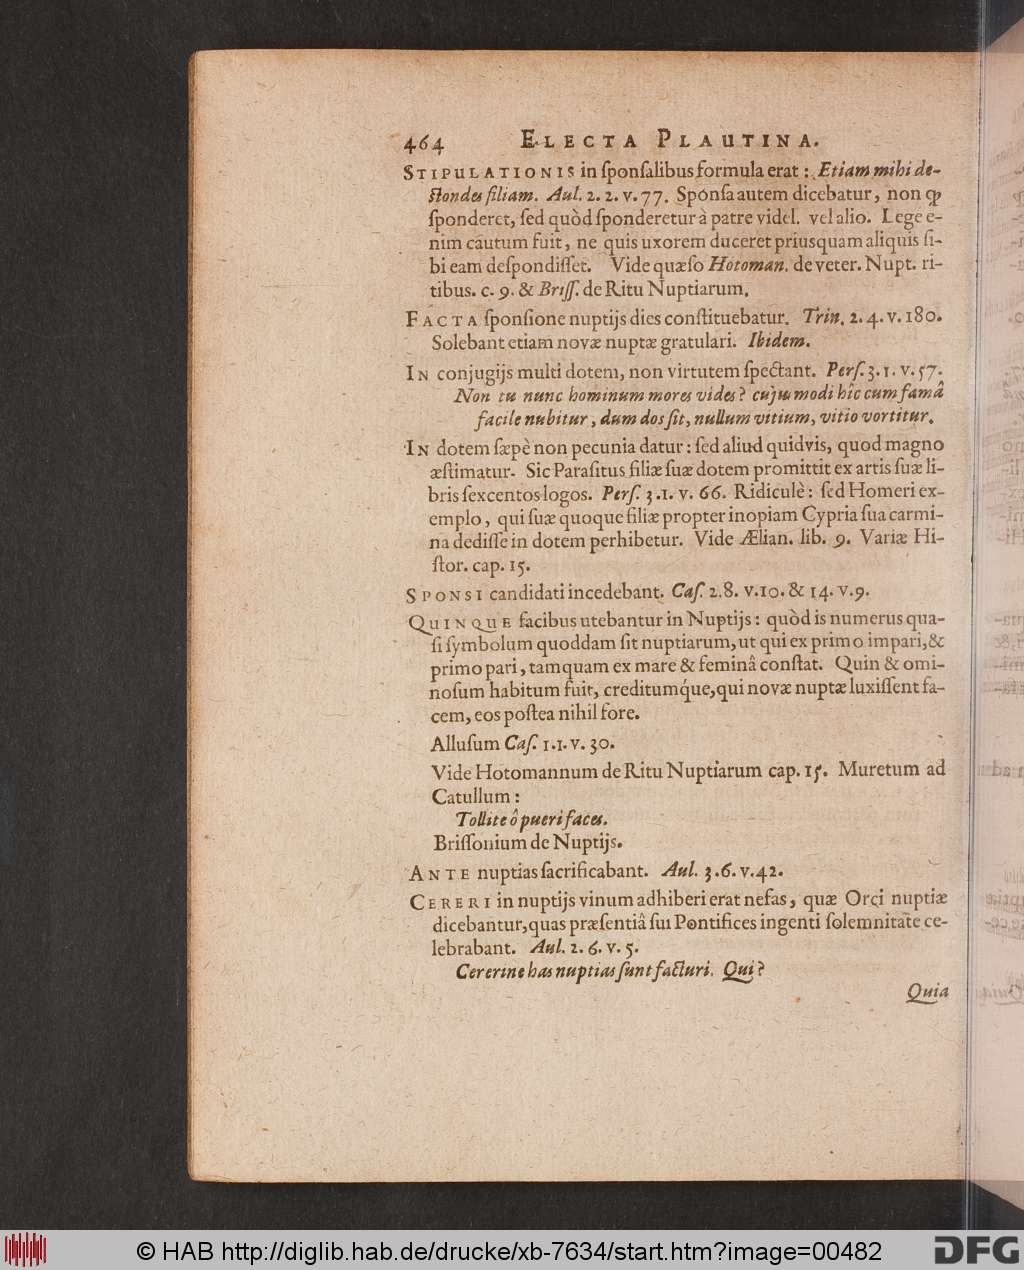 464 ELECTA PLAUTINA.
STIPULATIONIS in ſponſalibus formula erat: Etiam mihi de-
ſtondes filiam. Aul. 2. 2. v. 77. Sponſa autem dicebatur, non ꝙ
ſponderet, ſed quòd ſponderetur à patre videl. vel alio. Lege e-
nim cautum fuit, ne quis uxorem duceret priusquam aliquis ſi-
bi eam deſpondiſſet. Vide quæſo Hotoman. de veter. Nupt. ri-
tibus. c. 9. & Briſſ. de Ritu Nuptiarum.
FACTA ſponſione nuptijs dies conſtituebatur. Trin. 2. 4. v. 180.
Solebant etiam novæ nuptæ gratulari. Ibidem.
IN conjugijs multi dotem, non virtutem ſpectant. Perſ. 3. 1. v. 57.
Non tu nunc hominum mores vides? cujus modi hîc cum famâ
facile nubitur, dum dos ſit, nullum vitium, vitio vortitur.
IN dotem ſæpè non pecunia datur: ſed aliud quidvis, quod magno
æſtimatur. Sic Paraſitus filiæ ſuæ dotem promittit ex artis ſuæ li-
bris ſexcentos logos. Perſ. 3. 1. v. 66. Ridiculè: ſed Homeri ex-
emplo, qui ſuæ quoque filiæ propter inopiam Cypria ſua carmi-
na dediſſe in dotem perhibetur. Vide Ælian. lib. 9. Variæ Hi-
ſtor. cap. 15.
SPONSI candidati incedebant. Caſ. 2. 8. v. 10. & 14. v. 9.
QUINQUE facibus utebantur in Nuptijs: quòd is numerus qua-
ſi ſymbolum quoddam ſit nuptiarum, ut qui ex primo impari, &
primo pari, tamquam ex mare & feminâ conſtat. Quin & omi-
noſum habitum fuit, creditumq́ue, qui novæ nuptæ luxiſſent fa-
cem, eos poſtea nihil fore.
Alluſum Caſ. 1. 1. v. 30.
Vide Hotomannum de Ritu Nuptiarum cap. 15. Muretum ad
Catullum:
Tollite ô pueri faces.
Briſſonium de Nuptijs.
ANTE nuptias ſacrificabant. Aul. 3. 6. v. 42.
CERERI in nuptijs vinum adhiberi erat nefas, quæ Orci nuptiæ
dicebantur, quas præſentiâ ſui Pontifices ingenti ſolemnitate ce-
lebrabant. Aul. 2. 6. v. 5.
Cererine has nuptias ſunt facturi. Qui?
Quia
© HAB http://diglib.hab.de/drucke/xb-7634/start.htm?image=00482
DFG